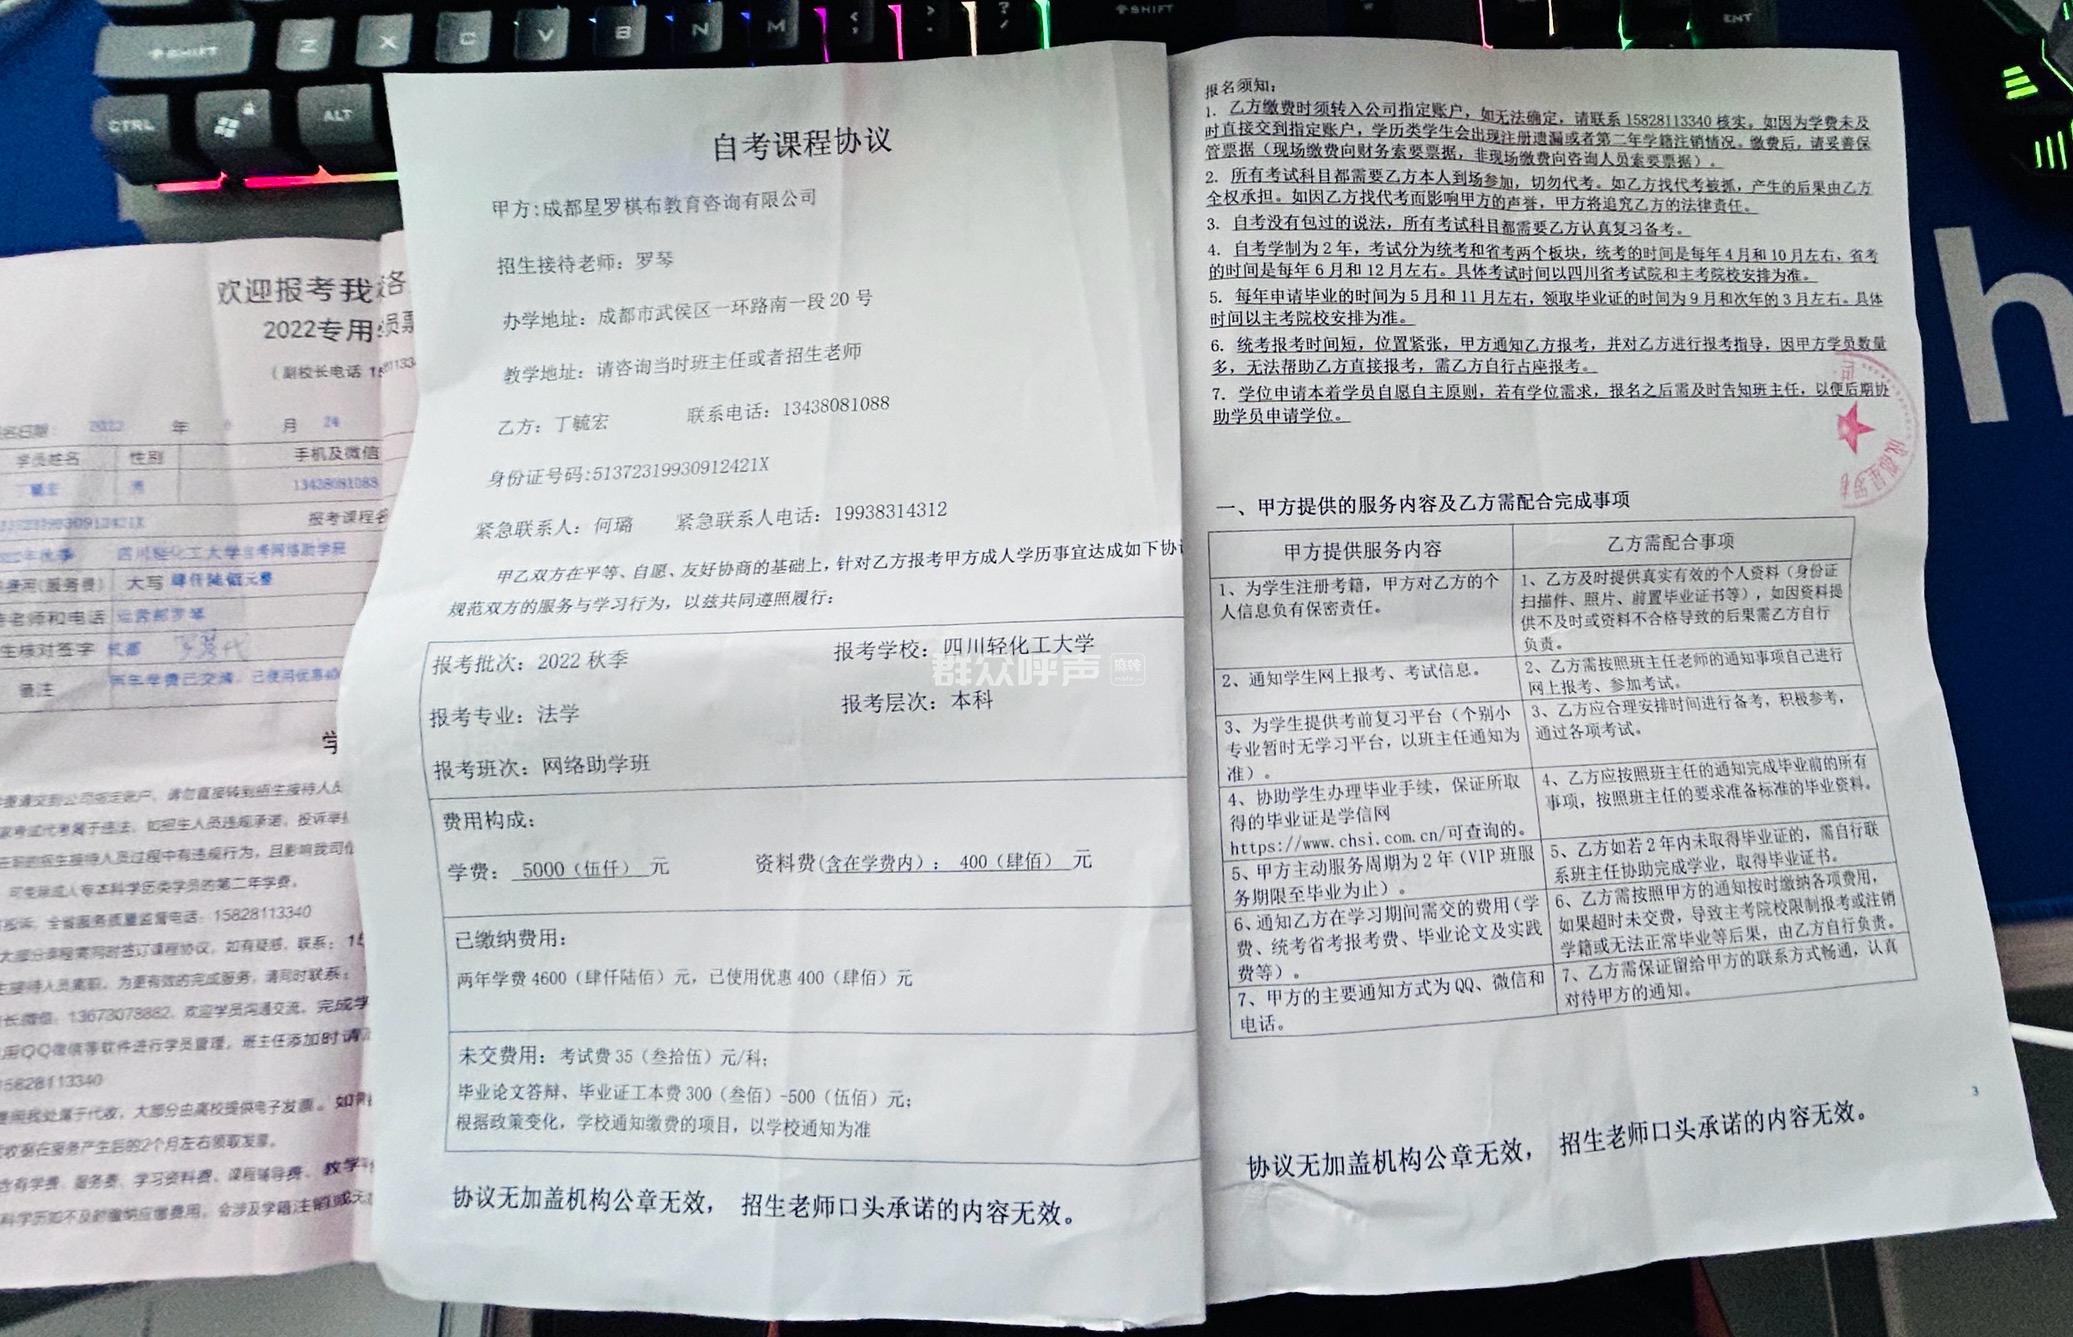 SHIFT
Z
X
C
V
B
N
M
SHIFT
ENT
CTRL
ALT
h
欢迎报考我
2022专用
(副校长电话
2022 年 月 24
学员姓名 性别 手机及微信
丁毓宏 男 13438081088
报考课程名
四川轻化工大学自考网络助学班
(服务费) 大写 肆仟陆佰元整
老师和电话 运营部罗琴
核对签字
备注 两年学费已交清,已使用优惠400
可免除成人专本科学历类学员的第二年学费。
投诉,全省服务质量监督电话:15828113340
大部分课程需同时签订课程协议,如有疑惑,联系:
接待人员离职,为更有效的完成服务,请同时联系:
长微信:13673078882,欢迎学员沟通交流,完成学
用QQ微信等软件进行学员管理,班主任添加时请
15828113340
我处属于代收,大部分由高校提供电子发票。如需
收据在服务产生后的2个月左右领取发票。
含有学费、服务费、学习资料费、课程辅导费、教学
科学历如不及时缴纳应缴费用,会涉及学籍注销或无
自考课程协议
甲方:成都星罗棋布教育咨询有限公司
招生接待老师:罗琴
办学地址:成都市武侯区一环路南一段20号
教学地址:请咨询当时班主任或者招生老师
乙方:丁毓宏 联系电话:13438081088
身份证号码:51372319930912421X
紧急联系人:何璐 紧急联系人电话:19938314312
甲乙双方在平等、自愿、友好协商的基础上,针对乙方报考甲方成人学历事宜达成如下协
规范双方的服务与学习行为,以兹共同遵照履行:
报考批次:2022秋季 报考学校:四川轻化工大学
报考专业:法学 报考层次:本科
报考班次:网络助学班
费用构成:
学费: 5000(伍仟) 元 资料费(含在学费内): 400(肆佰) 元
已缴纳费用:
两年学费4600(肆仟陆佰)元,已使用优惠400(肆佰)元
未交费用:考试费35(叁拾伍)元/科;
毕业论文答辩、毕业证工本费300(叁佰)-500(伍佰)元;
根据政策变化,学校通知缴费的项目,以学校通知为准
协议无加盖机构公章无效, 招生老师口头承诺的内容无效。
群众呼声
麻辣
报名须知:
1. 乙方缴费时须转入公司指定账户,如无法确定,请联系15828113340核实。如因为学费未及
时直接交到指定账户,学历类学生会出现注册遗漏或者第二年学籍注销情况。缴费后,请妥善保
管票据(现场缴费向财务索要票据,非现场缴费向咨询人员索要票据)。
2. 所有考试科目都需要乙方本人到场参加,切勿代考。如乙方找代考被抓,产生的后果由乙方
全权承担。如因乙方找代考而影响甲方的声誉,甲方将追究乙方的法律责任。
3. 自考没有包过的说法,所有考试科目都需要乙方认真复习备考。
4. 自考学制为2年,考试分为统考和省考两个板块,统考的时间是每年4月和10月左右,省考
的时间是每年6月和12月左右。具体考试时间以四川省考试院和主考院校安排为准。
5. 每年申请毕业的时间为5月和11月左右,领取毕业证的时间为9月和次年的3月左右。具体
时间以主考院校安排为准。
6. 统考报考时间短,位置紧张,甲方通知乙方报考,并对乙方进行报考指导,因甲方学员数量
多,无法帮助乙方直接报考,需乙方自行占座报考。
7. 学位申请本着学员自愿自主原则,若有学位需求,报名之后需及时告知班主任,以便后期协
助学员申请学位。
成都星罗
一、甲方提供的服务内容及乙方需配合完成事项
甲方提供服务内容 乙方需配合事项
1、为学生注册考籍,甲方对乙方的个
人信息负有保密责任。
1、乙方及时提供真实有效的个人资料(身份证
扫描件、照片、前置毕业证书等),如因资料提
供不及时或资料不合格导致的后果需乙方自行
负责。
2、通知学生网上报考、考试信息。
2、乙方需按照班主任老师的通知事项自己进行
网上报考、参加考试。
3、为学生提供考前复习平台(个别小
专业暂时无学习平台,以班主任通知为
准)。
3、乙方应合理安排时间进行备考,积极参考,
通过各项考试。
4、协助学生办理毕业手续,保证所取
得的毕业证是学信网
https://www.chsi.com.cn/可查询的。
4、乙方应按照班主任的通知完成毕业前的所有
事项,按照班主任的要求准备标准的毕业资料。
5、甲方主动服务周期为2年(VIP班服
务期限至毕业为止)。
5、乙方如若2年内未取得毕业证的,需自行联
系班主任协助完成学业,取得毕业证书。
6、通知乙方在学习期间需交的费用(学
费、统考省考报考费、毕业论文及实践
费等)。
6、乙方需按照甲方的通知按时缴纳各项费用,
如果超时未交费,导致主考院校限制报考或注销
学籍或无法正常毕业等后果,由乙方自行负责。
7、甲方的主要通知方式为QQ、微信和
电话。
7、乙方需保证留给甲方的联系方式畅通,认真
对待甲方的通知。
3
协议无加盖机构公章无效, 招生老师口头承诺的内容无效。